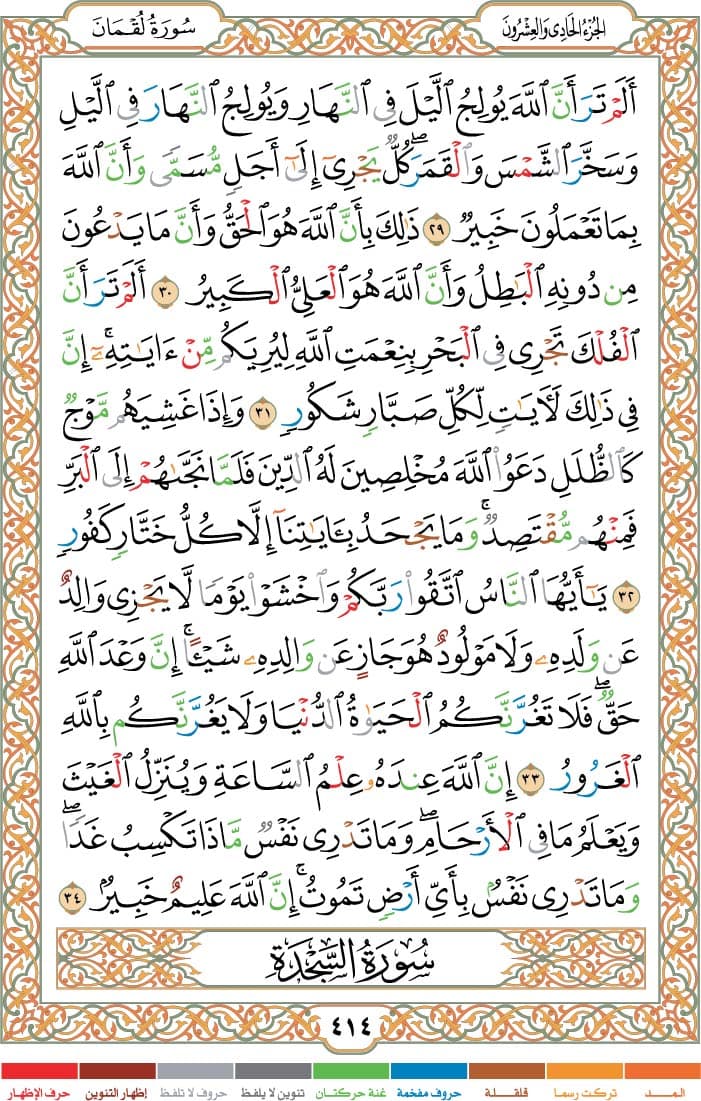 سُورَةُ لُقْمَانَ
الجُزْءُ الحَادِي وَالعِشْرُونَ
أَلَمْ تَرَ أَنَّ ٱللَّهَ يُولِجُ ٱلَّيْلَ فِى ٱلنَّهَارِ وَيُولِجُ ٱلنَّهَارَ فِى ٱلَّيْلِ
وَسَخَّرَ ٱلشَّمْسَ وَٱلْقَمَرَۖ كُلٌّ يَجْرِىٓ إِلَىٰٓ أَجَلٍ مُّسَمًّى وَأَنَّ ٱللَّهَ
بِمَا تَعْمَلُونَ خَبِيرٌ ٢٩ ذَٰلِكَ بِأَنَّ ٱللَّهَ هُوَ ٱلْحَقُّ وَأَنَّ مَا يَدْعُونَ
مِن دُونِهِ ٱلْبَٰطِلُ وَأَنَّ ٱللَّهَ هُوَ ٱلْعَلِىُّ ٱلْكَبِيرُ ٣٠ أَلَمْ تَرَ أَنَّ
ٱلْفُلْكَ تَجْرِى فِى ٱلْبَحْرِ بِنِعْمَتِ ٱللَّهِ لِيُرِيَكُم مِّنْ ءَايَٰتِهِۦٓۚ إِنَّ
فِى ذَٰلِكَ لَءَايَٰتٍ لِّكُلِّ صَبَّارٍ شَكُورٍ ٣١ وَإِذَا غَشِيَهُم مَّوْجٌ
كَٱلظُّلَلِ دَعَوُا۟ ٱللَّهَ مُخْلِصِينَ لَهُ ٱلدِّينَ فَلَمَّا نَجَّىٰهُمْ إِلَى ٱلْبَرِّ
فَمِنْهُم مُّقْتَصِدٌۚ وَمَا يَجْحَدُ بِـَٔايَٰتِنَآ إِلَّا كُلُّ خَتَّارٍ كَفُورٍ
٣٢ يَٰٓأَيُّهَا ٱلنَّاسُ ٱتَّقُوا۟ رَبَّكُمْ وَٱخْشَوْا۟ يَوْمًا لَّا يَجْزِى وَالِدٌ
عَن وَلَدِهِۦ وَلَا مَوْلُودٌ هُوَ جَازٍ عَن وَالِدِهِۦ شَيْـًٔاۚ إِنَّ وَعْدَ ٱللَّهِ
حَقٌّۖ فَلَا تَغُرَّنَّكُمُ ٱلْحَيَوٰةُ ٱلدُّنْيَا وَلَا يَغُرَّنَّكُم بِٱللَّهِ
ٱلْغَرُورُ ٣٣ إِنَّ ٱللَّهَ عِندَهُۥ عِلْمُ ٱلسَّاعَةِ وَيُنَزِّلُ ٱلْغَيْثَ
وَيَعْلَمُ مَا فِى ٱلْأَرْحَامِۖ وَمَا تَدْرِى نَفْسٌ مَّاذَا تَكْسِبُ غَدًاۖ
وَمَا تَدْرِى نَفْسٌۢ بِأَىِّ أَرْضٍ تَمُوتُۚ إِنَّ ٱللَّهَ عَلِيمٌ خَبِيرٌۢ ٣٤
سُورَةُ السَّجْدَةِ
٤١٤
المـــد تركت رسما قلقـلة حروف مفخمة غنة حركتان تنوين لا يلفظ حروف لا تلفظ إظهار التنوين حرف الإظهار